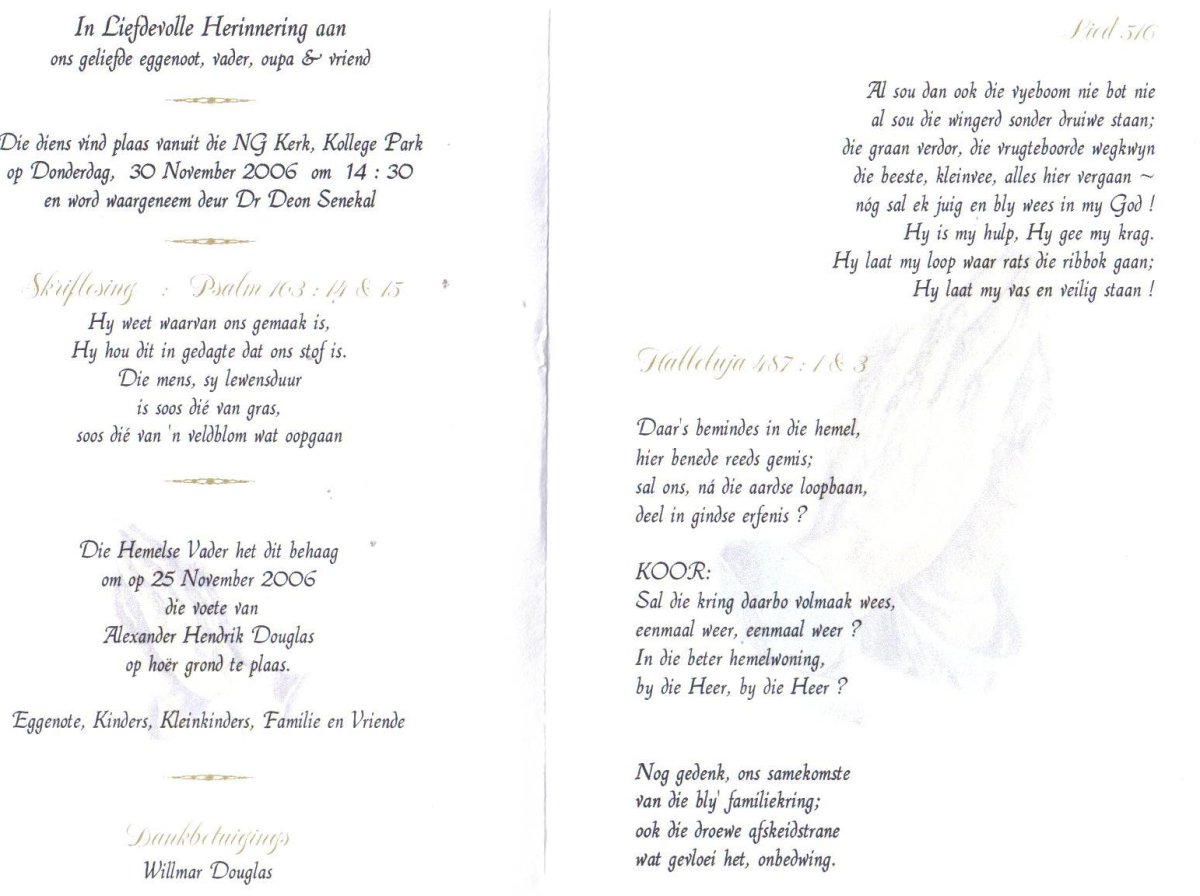 In Liefdevolle Herinnering aan
ons geliefde eggenoot, vader, oupa & vriend
Die diens vind plaas vanuit die NG Kerk, Kollege Park
op Donderdag, 30 November 2006 om 14 : 30
en word waargeneem deur Dr Deon Senekal
Skriflesing : Psalm 103 : 14 & 15
Hy weet waarvan ons gemaak is,
Hy hou dit in gedagte dat ons stof is.
Die mens, sy lewensduur
is soos dié van gras,
soos dié van 'n veldblom wat oopgaan
Die Hemelse Vader het dit behaag
om op 25 November 2006
die voete van
Alexander Hendrik Douglas
op hoër grond te plaas.
Eggenote, Kinders, Kleinkinders, Familie en Vriende
Dankbetuigings
Willmar Douglas
Lied 516
Al sou dan ook die vyeboom nie bot nie
al sou die wingerd sonder druiwe staan;
die graan verdor, die vrugteboorde wegkwyn
die beeste, kleinvee, alles hier vergaan ~
nóg sal ek juig en bly wees in my God !
Hy is my hulp, Hy gee my krag.
Hy laat my loop waar rats die ribbok gaan;
Hy laat my vas en veilig staan !
Halleluja 487 : 1 & 3
Daar's bemindes in die hemel,
hier benede reeds gemis;
sal ons, ná die aardse loopbaan,
deel in gindse erfenis ?
KOOR:
Sal die kring daarbo volmaak wees,
eenmaal weer, eenmaal weer ?
In die beter hemelwoning,
by die Heer, by die Heer ?
Nog gedenk, ons samekomste
van die bly' familiekring;
ook die droewe afskeidstrane
wat gevloei het, onbedwing.